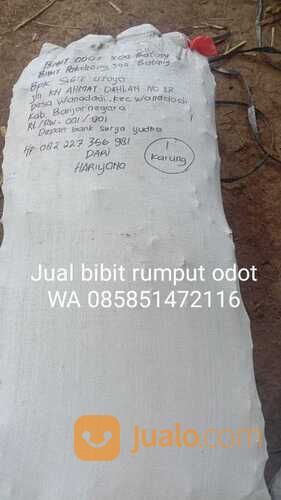 BIBIT ODOT 200 Batang
BIBIT Pakchong 300 Batang
BPK Sabit utoyo
Jln KH AHMAT DAHLAN NO 12
Desa Wanadadi, kec wanadadi
Kab Banjarnegara
Rt/Rw - 001/001
Depan bank surya yudha
Hp 082 227 366 981
DARI
HARIYONO
1
karung
Jual bibit rumput odot
WA 085851472116
Jualo.com